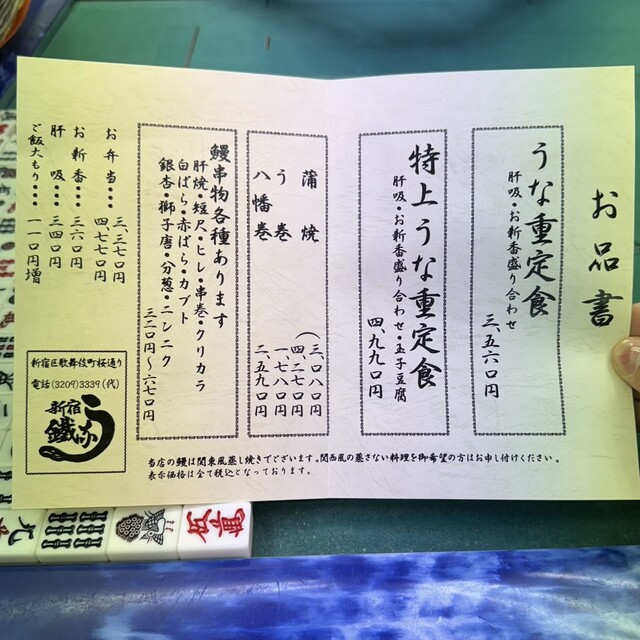 お品書
うな重定食
肝吸・お新香盛り合わせ
三、五六〇円
特上うな重定食
肝吸・お新香盛り合わせ・玉子豆腐
四、九九〇円
蒲焼
(三、〇八〇円
(四、二七〇円
う巻
一、七八〇円
八幡巻
二、五九〇円
鰻串物各種あります
肝焼・短尺・ヒレ・串巻・クリカラ
白ばら・赤ばら・カブト
銀杏・獅子唐・分葱・ニンニク
三二〇円〜六七〇円
お弁当・・・三、三七〇円
四、七七〇円
お新香・・・三六〇円
肝吸・・・三四〇円
ご飯大もり・・・一一〇円増
新宿区歌舞伎町桜通り
電話(3209)3339(代)
新宿
鐵
うな
当店の鰻は関東風蒸し焼きでございます。関西風の蒸さない料理を御希望の方はお申し付けください。
表示価格は全て税込となっております。
九
萬
伍